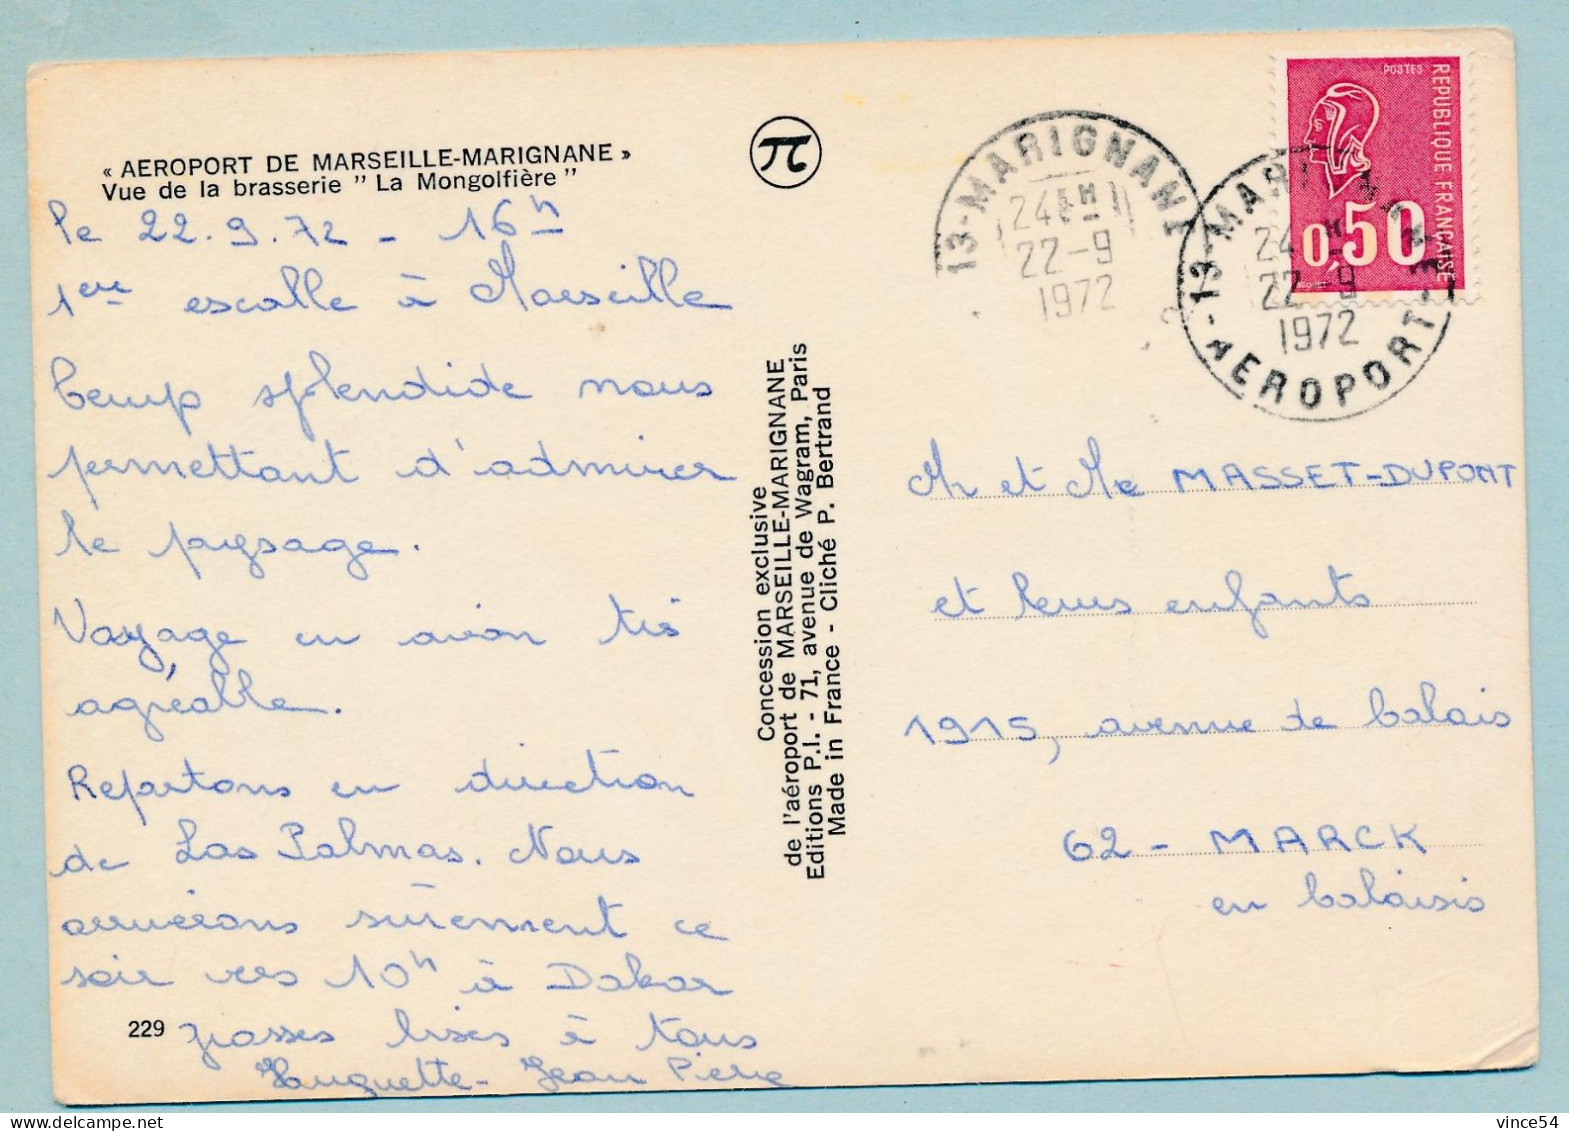 « AEROPORT DE MARSEILLE-MARIGNANE »
Vue de la brasserie " La Mongolfière "
le 22.9.72 - 16h
1ère escalle à Marseille
temps splendide nous
permettant d'admirer
le paysage.
Voyage en avion très
agréable.
Repartons en direction
de Las Palmas. Nous
arriverons sûrement ce
soir vers 10h à Dakar
grosses bises à tous
Huguette - Jean Pierre
229
π
Concession exclusive
de l'aéroport de MARSEILLE-MARIGNANE
Editions P.I. - 71, avenue de Wagram, Paris
Made in France - Cliché P. Bertrand
13-MARIGNANE
24H
22-9
1972
POSTES
REPUBLIQUE FRANÇAISE
0,50
13-MARIGNANE
24H
22-9
1972
AEROPORT
Mr et Me MASSET-DUPONT
et leurs enfants
1915, avenue de Calais
62 - MARCK
en Calaisis
vince54